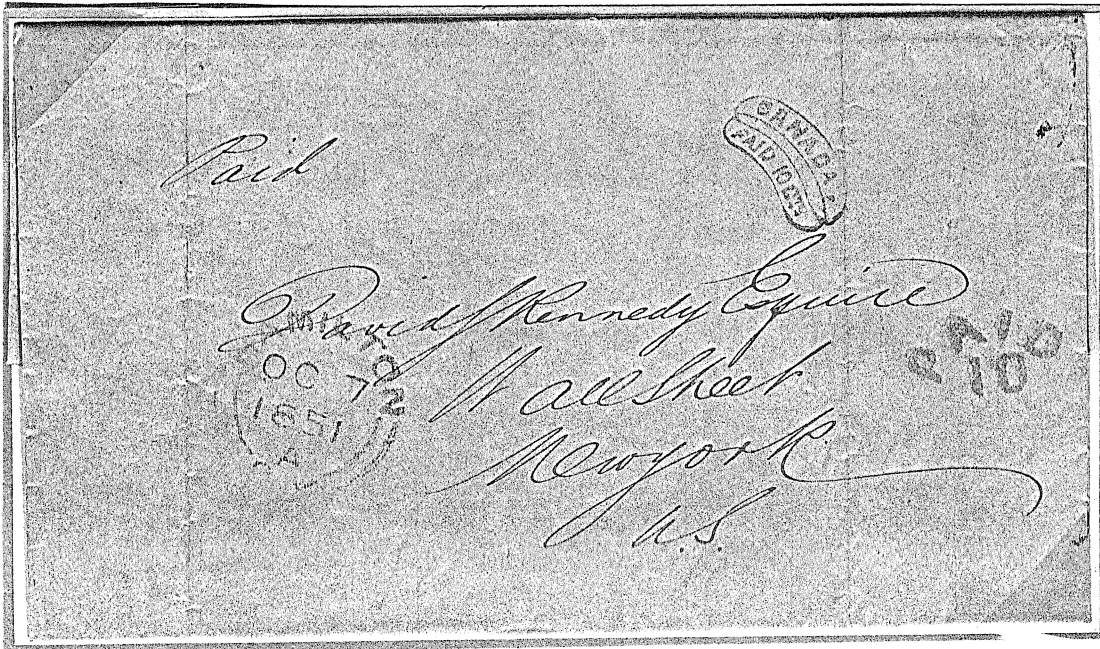 Paid
CANADA
PAID 10 Cts
David S Kennedy Esquire
Wall Street
New york
U.S.
OC 7
1851
PAID
10